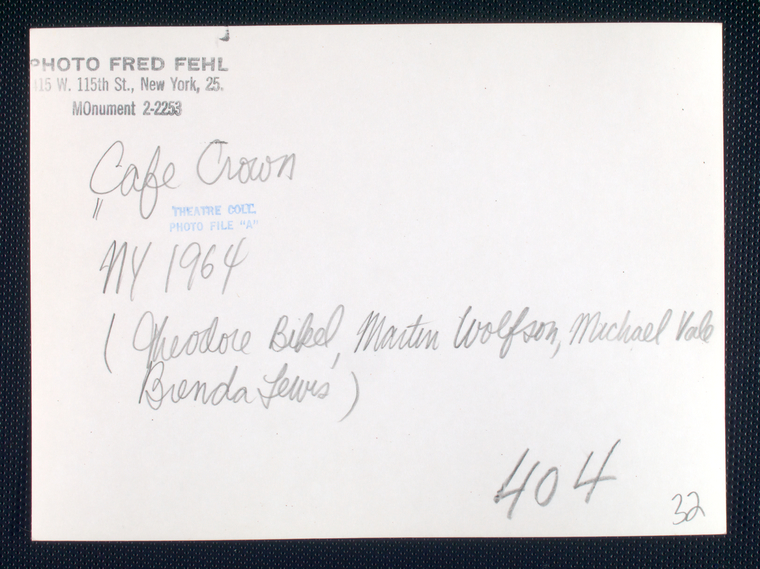 PHOTO FRED FEHL
415 W. 115th St., New York, 25.
MOnument 2-2253
Cafe Crown
"
THEATRE COLL.
PHOTO FILE "A"
NY 1964
( Theodore Bikel, Martin Wolfson, Michael Vale
Brenda Lewis )
404
32